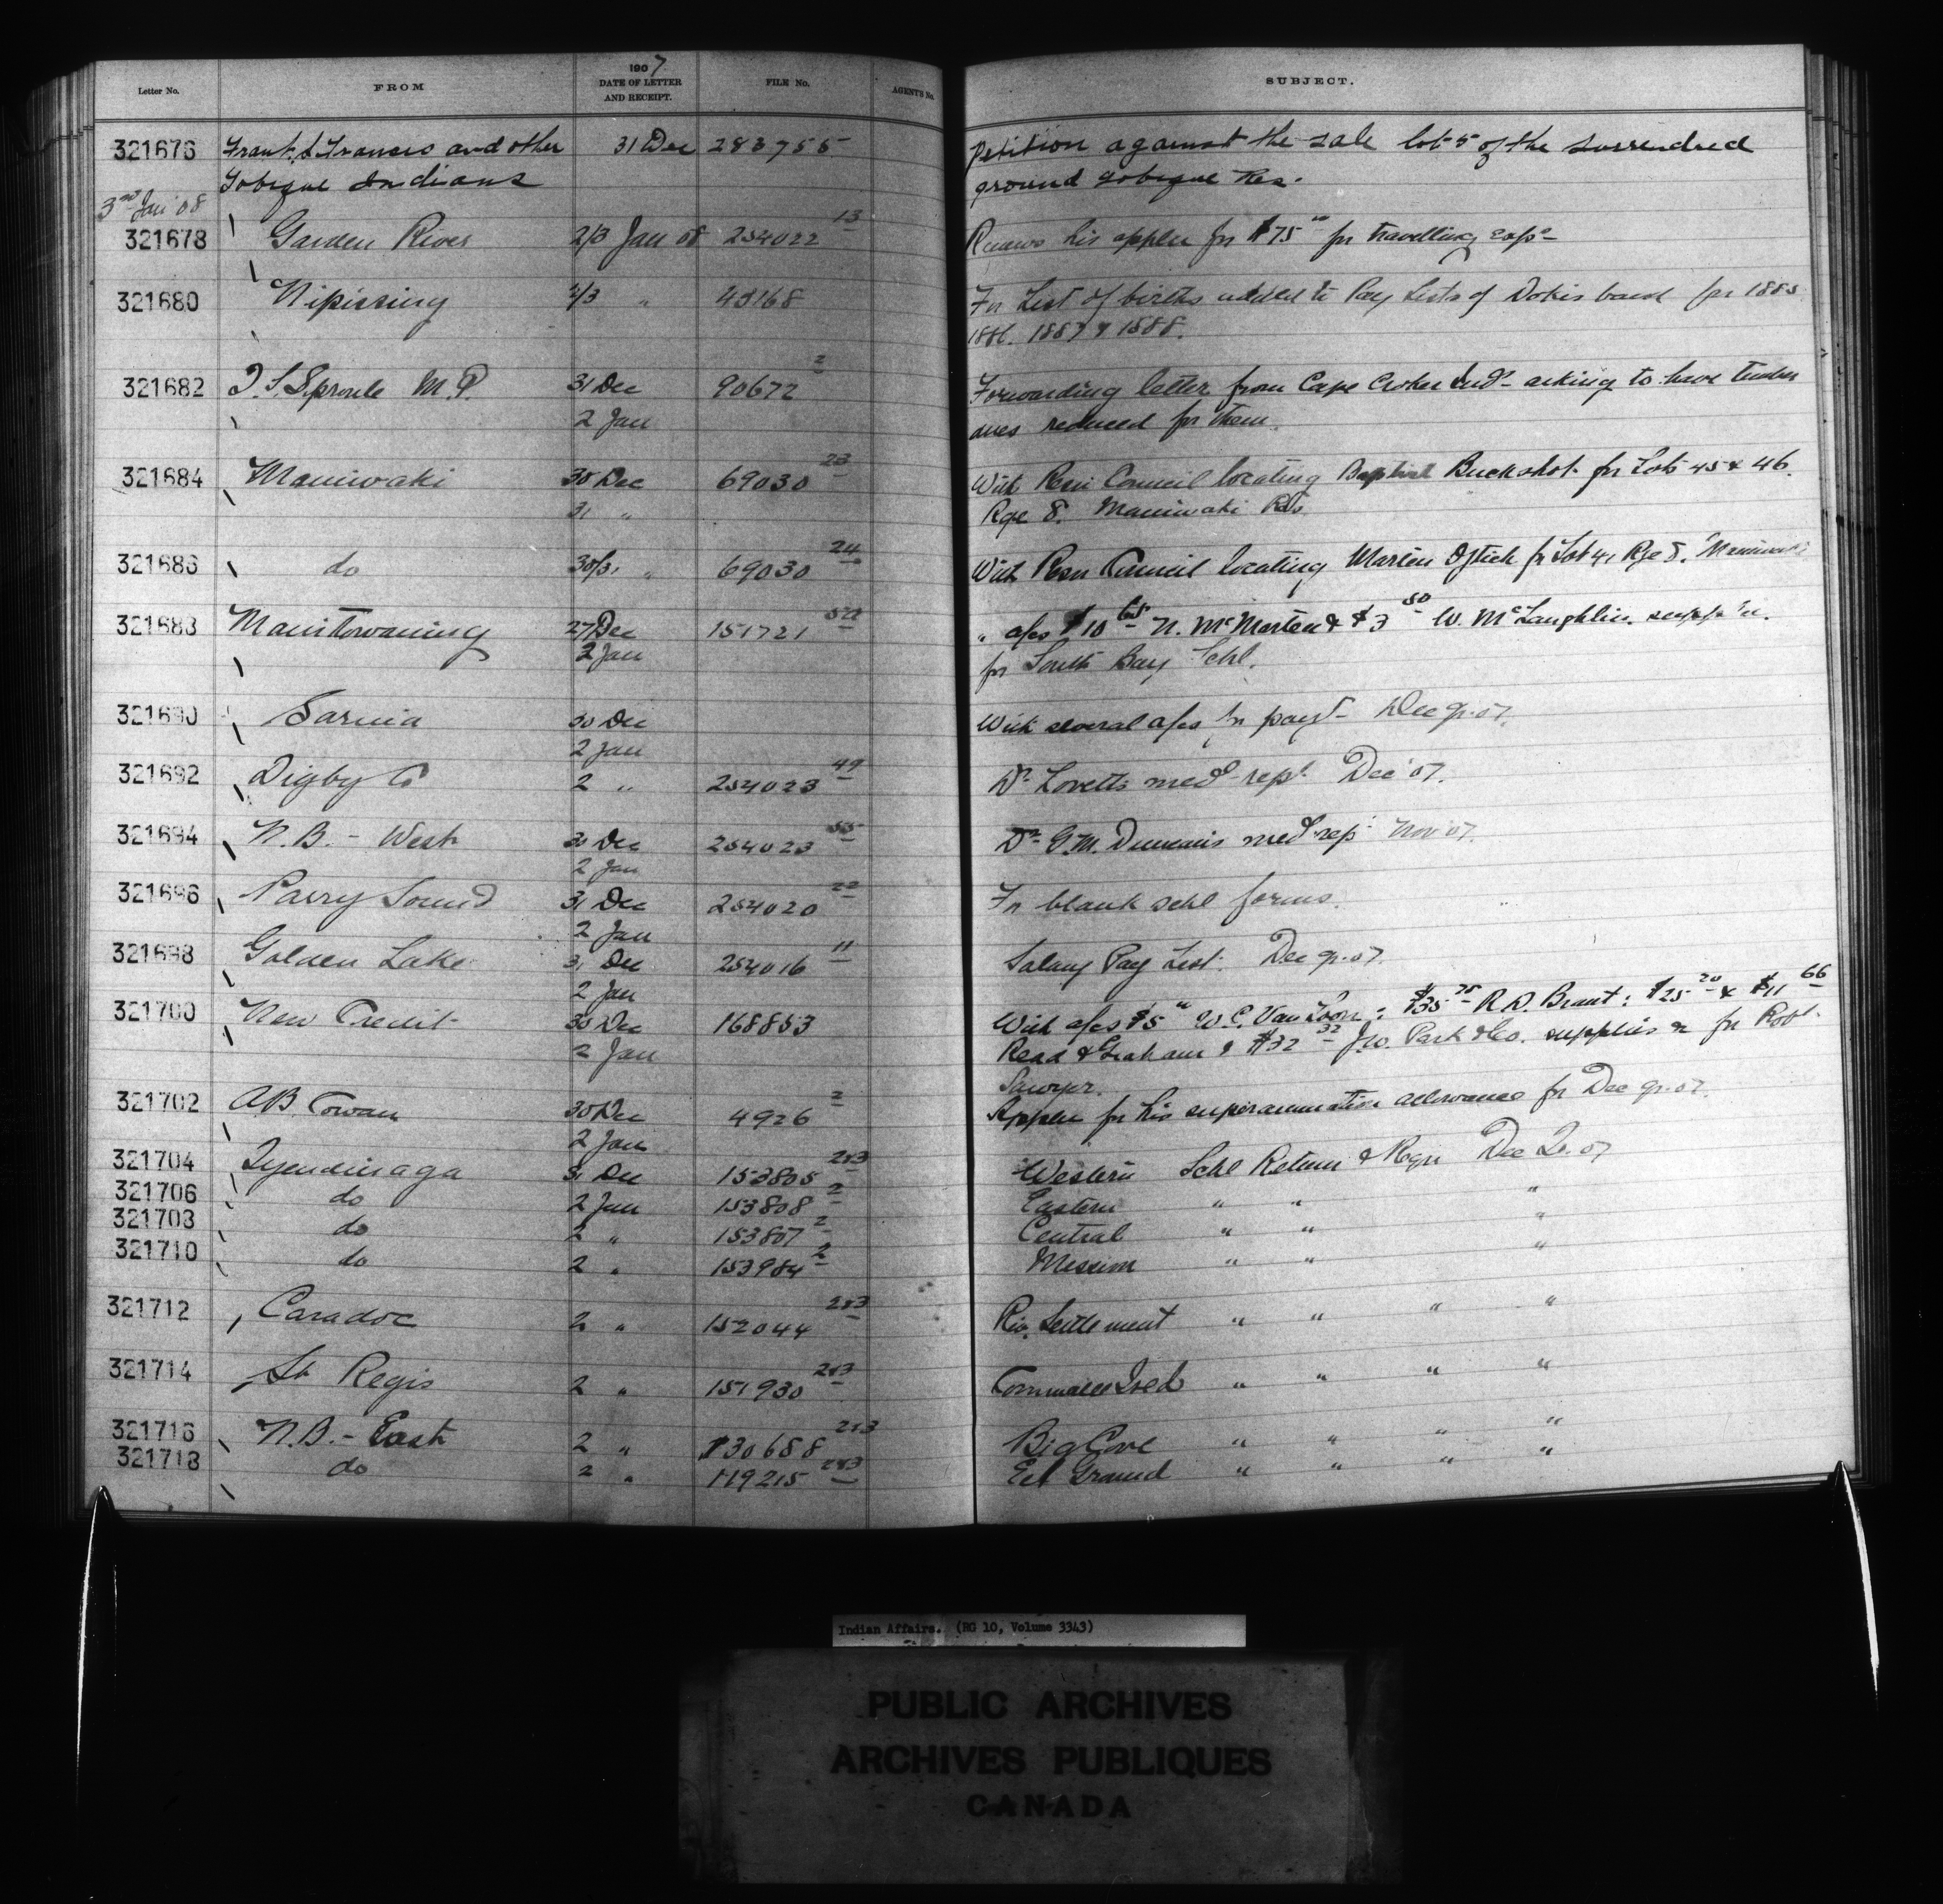 Letter No. FROM 1907 DATE OF LETTER AND RECEIPT. FILE No. AGENT'S No. SUBJECT.
321676 Frank. L Francis and other 31 Dec 283755 Petition against the sale lot 5 of the surrendred
Tobique Indians ground Tobique Res.
3rd Jan '08
321678 Garden River 2/3 Jan 08 254022 13 Renews his applcn for $75 " for travelling exps
321680 Nipissing 2/3 " 40168 Fr List of births added to Pay Lists of Dokis band for 1885
1886. 1887 & 1888.
321682 T. S. Sproule M.P. 31 Dec 90672 2 Forwarding letter from Cape Croker Inds asking to have timber
2 Jan dues reduced for them.
321684 Maniwaki 30 Dec 69030 23 With Resn Council locating Baptiste Buckshot for Lots 45 & 46
31 " Rge 8. Maniwaki Res
321686 do 30/31 " 69030 24 With Resn Council locating Marten for Lot 41 Rge 8. Maniwaki
321688 Manitowaning 27 Dec 151721 " a/cs $10 65 N. McMorten & $3 50 W. McLaughlin. supp'n.
2 Jan for South Bay Schl.
321690 Sarnia 30 Dec With several a/cs for payt Dec qr. 07.
2 Jan
321692 Digby Co 2 " 254023 49 Dr Lovetts med rept Dec '07.
321694 N.B. - West 30 Dec 254023 55 Dr G.M. Duncans med rep Nov '07.
2 Jan
321696 Parry Sound 31 Dec 254020 22 Fr blank schl forms.
2 Jan
321698 Golden Lake 31 Dec 254016 11 Salary Pay List. Dec qr. 07.
2 Jan
321700 New Credit 30 Dec 168853 With a/cs $5 " W.C. Van Loon; $35 75 R.D. Brant; $25 20 & $11 66
2 Jan Read & Graham & $32 32 Jno. Park & Co. supplies for Robt.
Sawyer.
321702 AB Cowan 30 Dec 4926 2 Applcn for his superannuation allowance for Dec qr. 07.
2 Jan
321704 Tyendinaga 31 Dec 153805 2&3 Western Schl Return & Regr Dec Q. 07
321706 do 2 Jan 153808 2 Eastern " " "
321708 do 2 " 153807 2 Central " " "
321710 do 2 " 153984 2 Mission " " "
321712 Caradoc 2 " 152044 2&3 Riv. Settlement " " " "
321714 St Regis 2 " 151930 2&3 Cornwall Isld " " " "
321716 N.B. - East 2 " 130688 2&3 Big Cove " " " "
321718 do 2 " 119215 2&3 Eel Ground " " " "
Indian Affairs. (RG 10, Volume 3343)
PUBLIC ARCHIVES
ARCHIVES PUBLIQUES
CANADA